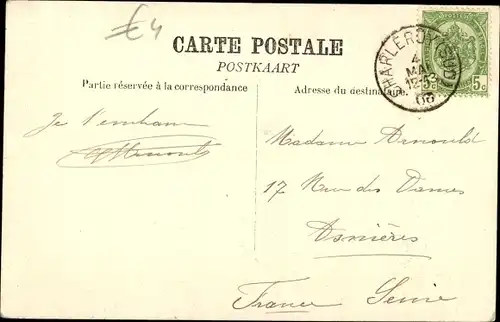 €4
CARTE POSTALE
POSTKAART
Partie réservée à la correspondance
Adresse du destinataire.
CHARLEROY (SUD)
4
MAI
12-S
03
5c 5c
Je
Madame Arnould
17 Rue des Dames
Asnières
France Seine